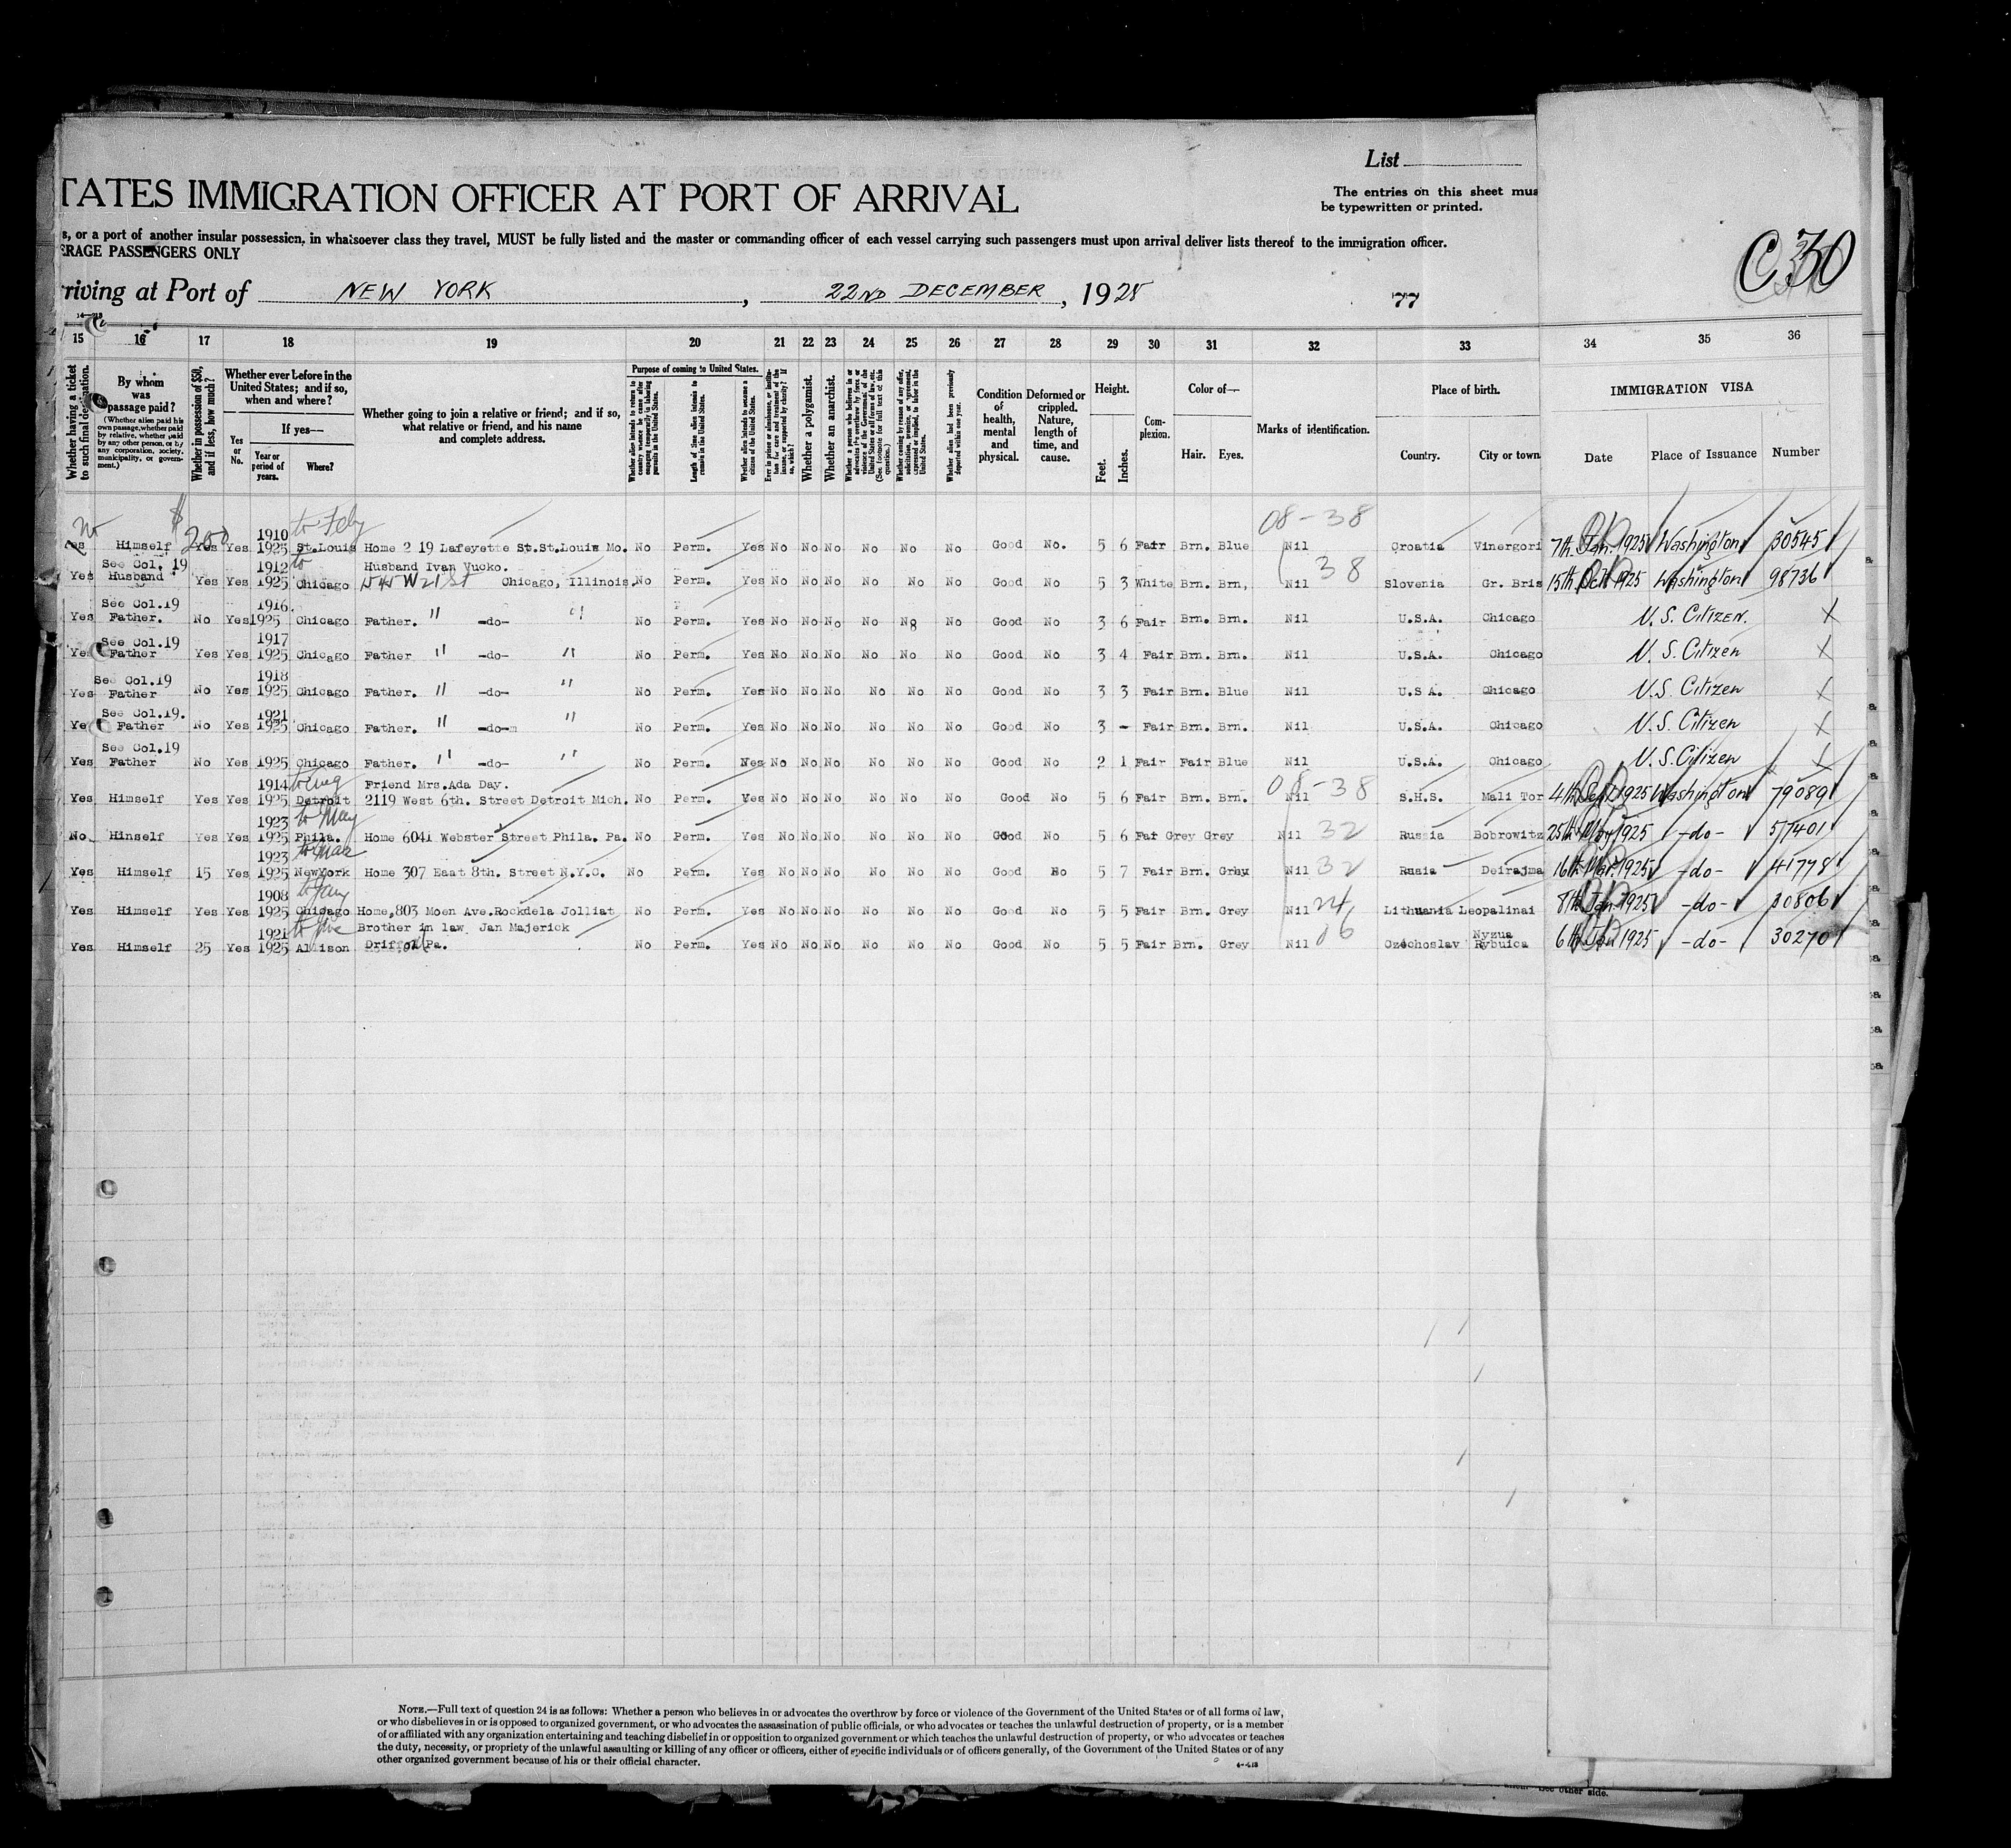 List
TATES IMMIGRATION OFFICER AT PORT OF ARRIVAL
The entries on this sheet mus
be typewritten or printed.
s, or a port of another insular possession, in whatsoever class they travel, MUST be fully listed and the master or commanding officer of each vessel carrying such passengers must upon arrival deliver lists thereof to the immigration officer.
ERAGE PASSENGERS ONLY
C30
rriving at Port of NEW YORK, 22ND DECEMBER, 1925
77
15 16 17 18 19 20 21 22 23 24 25 26 27 28 29 30 31 32 33 34 35 36
Whether having a ticket to such final destination.
By whom was passage paid?
(Whether alien paid his own passage, whether paid by relative, whether paid by any other person, or by any corporation, society, municipality, or government.)
Whether in possession of $50, and if less, how much?
Whether ever before in the United States; and if so, when and where?
Yes or No.
If yes—
Year or period of years.
Where?
Whether going to join a relative or friend; and if so, what relative or friend, and his name and complete address.
Purpose of coming to United States.
Whether alien intends to return to country whence he came after engaging temporarily in laboring pursuits in the United States.
Length of time alien intends to remain in the United States.
Whether alien intends to become a citizen of the United States.
Whether a polygamist.
Whether an anarchist.
Whether alien had been previously deported within one year.
Condition of health, mental and physical.
Deformed or crippled. Nature, length of time, and cause.
Height.
Feet. Inches.
Complexion.
Color of—
Hair. Eyes.
Marks of identification.
Place of birth.
Country. City or town
IMMIGRATION VISA
Date Place of Issuance Number
No $ 200 to Feby 08-38
Yes Himself Yes Yes 1910 1925 St.Louis Home 2 19 Lafeyette St.St.Louis Mo. No Perm. Yes No No No No No No Good No. 5 6 Fair Brn. Blue Nil Croatia Vinergori 7th Jan. 1925 Washington 30545
See Col. 19 1912 to Husband Ivan Vucko. 38
Yes Husband Yes Yes 1925 Chicago 545 W 21 St Chicago, Illinois. No Perm. Yes No No No No No No Good No 5 3 White Brn. Brn, Nil Slovenia Gr. Bris 15th Oct 1925 Washington 98736
See Col.19 1916.
Yes Father. No Yes 1925. Chicago Father. " -do- " No Perm. Yes No No No No No No Good No 3 6 Fair Brn. Brn. Nil U.S.A. Chicago U.S. Citizen. X
See Col.19 1917
Yes Father Yes Yes 1925 Chicago Father " -do- " No Perm. Yes No No No No No No Good No 3 4 Fair Brn. Brn. Nil U.S.A. Chicago U.S. Citizen X
See Col.19 1918
Yes Father No Yes 1925 Chicago Father. " -do- " No Perm. Yes No No No No No No Good No 3 3 Fair Brn. Blue Nil U.S A. Chicago U.S. Citizen X
See Col.19. 1921
Yes Father No Yes 1925 Chicago Father. " -do- " No Perm. Yes No No No No No No Good No 3 - Fair Brn. Brn. Nil U.S.A. Chicago U.S. Citizen X
See Col.19
Yes Father No Yes 1925 Chicago Father. " -do- " No Perm. Yes No No No No No No Good No 2 1 Fair Fair Blue Nil U.S.A. Chicago U.S. Citizen X
1914 to Aug Friend Mrs.Ada Day. 08-38
Yes Himself Yes Yes 1925 Detroit 2119 West 6th. Street Detroit Mich. No Perm. Yes No No No No No No Good No 5 6 Fair Brn. Brn. Nil S.H.S. Mali Tor 4th Sept 1925 Washington 79089
1923 to May
No. Hinself Yes Yes 1925 Phila. Home 6041 Webster Street Phila. Pa. No Perm. Yes No No No No No No Good No 5 6 Fat Grey Grey Nil 32 Russia Bobrowitz 25th May 1925 -do- 57401
1923 to Mar
Yes Himself 15 Yes 1925 NewYork Home 307 East 8th. Street N.Y.C. No Perm. Yes No No No No No No Good No 5 7 Fair Brn. Grey Nil 32 Rusia Deirajma 16th Mar. 1925 -do- 41778
1908 to Jany
Yes Himself Yes Yes 1925 Chicago Home,803 Moen Ave.Rockdela Jolliat No Perm. Yes No No No No No No Good No 5 5 Fair Brn. Grey Nil 24 Lithuania Leopalinai 8th Jan 1925 -do- 30806
1921 Brother in law Jan Majerick Nyzua
Yes Himself 25 Yes 1925 Allison Pa. No Perm. Yes No No No No No No Good No 5 5 Fair Brn. Grey Nil 06 Czechoslav Rybuica 6th Jan 1925 -do- 30270
NOTE.—Full text of question 24 is as follows: Whether a person who believes in or advocates the overthrow by force or violence of the Government of the United States or of all forms of law,
or who disbelieves in or is opposed to organized government, or who advocates the assassination of public officials, or who advocates or teaches the unlawful destruction of property, or is a member
of or affiliated with any organization entertaining and teaching disbelief in or opposition to organized government or which teaches the unlawful destruction of property, or who advocates or teaches
the duty, necessity, or propriety of the unlawful assaulting or killing of any officer or officers, either of specific individuals or of officers generally, of the Government of the United States or of any
other organized government because of his or their official character.
See other side.